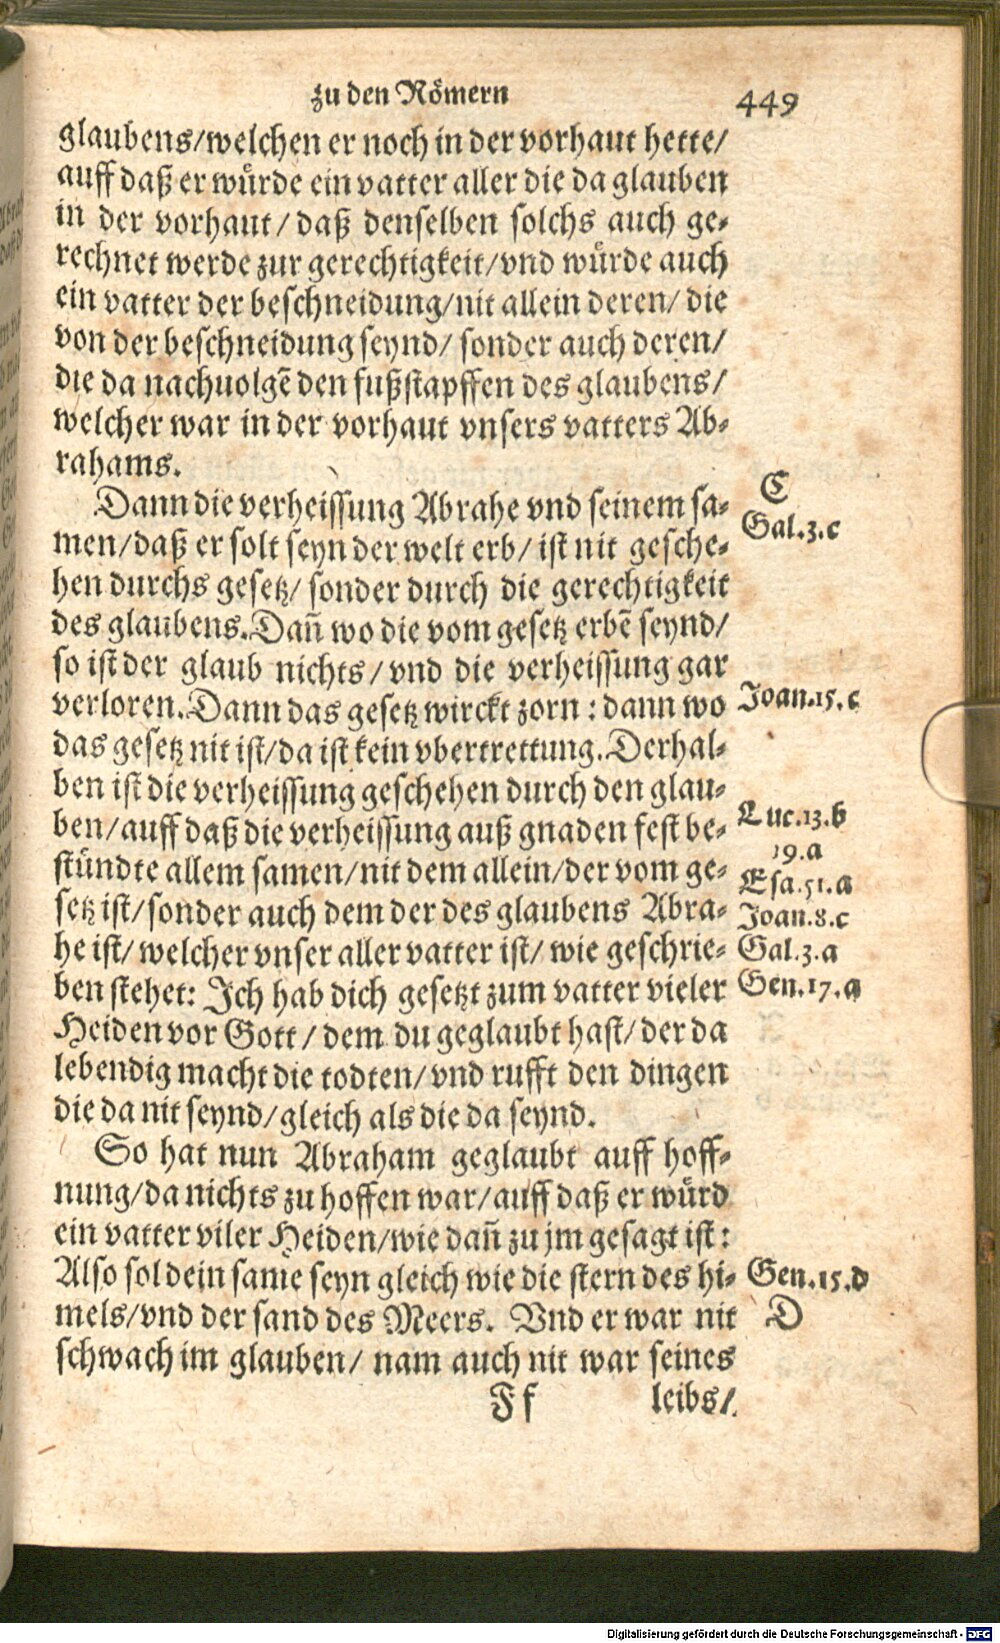 zu den Römern 449
glaubens/welchen er noch in der vorhaut hette/
auff daß er würde ein vatter aller die da glauben
in der vorhaut/ daß denselben solchs auch ge-
rechnet werde zur gerechtigkeit/vnd würde auch
ein vatter der beschneidung/nit allein deren/ die
von der beschneidung seynd/ sonder auch deren/
die da nachuolgē den fußstapffen des glaubens/
welcher war in der vorhaut vnsers vatters Ab-
rahams.
C
Dann die verheissung Abrahe vnd seinem sa-
Gal.3.c
men/daß er solt seyn der welt erb/ ist nit gesche-
hen durchs gesetz/ sonder durch die gerechtigkeit
des glaubens. Dañ wo die vom gesetz erbē seynd/
so ist der glaub nichts/vnd die verheissung gar
verloren. Dann das gesetz wirckt zorn: dann wo
Joan.15.c
das gesetz nit ist/da ist kein vbertrettung. Derhal-
ben ist die verheissung geschehen durch den glau-
ben/auff daß die verheissung auß gnaden fest be-
Luc.13.b
19.a
stündte allem samen/nit dem allein/der vom ge-
Esa.51.a
setz ist/sonder auch dem der des glaubens Abra-
Joan.8.c
he ist/welcher vnser aller vatter ist/ wie geschrie-
Gal.3.a
ben stehet: Ich hab dich gesetzt zum vatter vieler
Gen.17.a
Heiden vor Gott/ dem du geglaubt hast/ der da
lebendig macht die todten/vnd rufft den dingen
die da nit seynd/gleich als die da seynd.
So hat nun Abraham geglaubt auff hoff-
nung/da nichts zu hoffen war/auff daß er würd
ein vatter viler Heiden/wie dañ zu jm gesagt ist:
Also sol dein same seyn gleich wie die stern des hi-
Gen.15.d
mels/vnd der sand des Meers. Vnd er war nit
D
schwach im glauben/ nam auch nit war seines
Ff leibs/
Digitalisierung gefördert durch die Deutsche Forschungsgemeinschaft - DFG